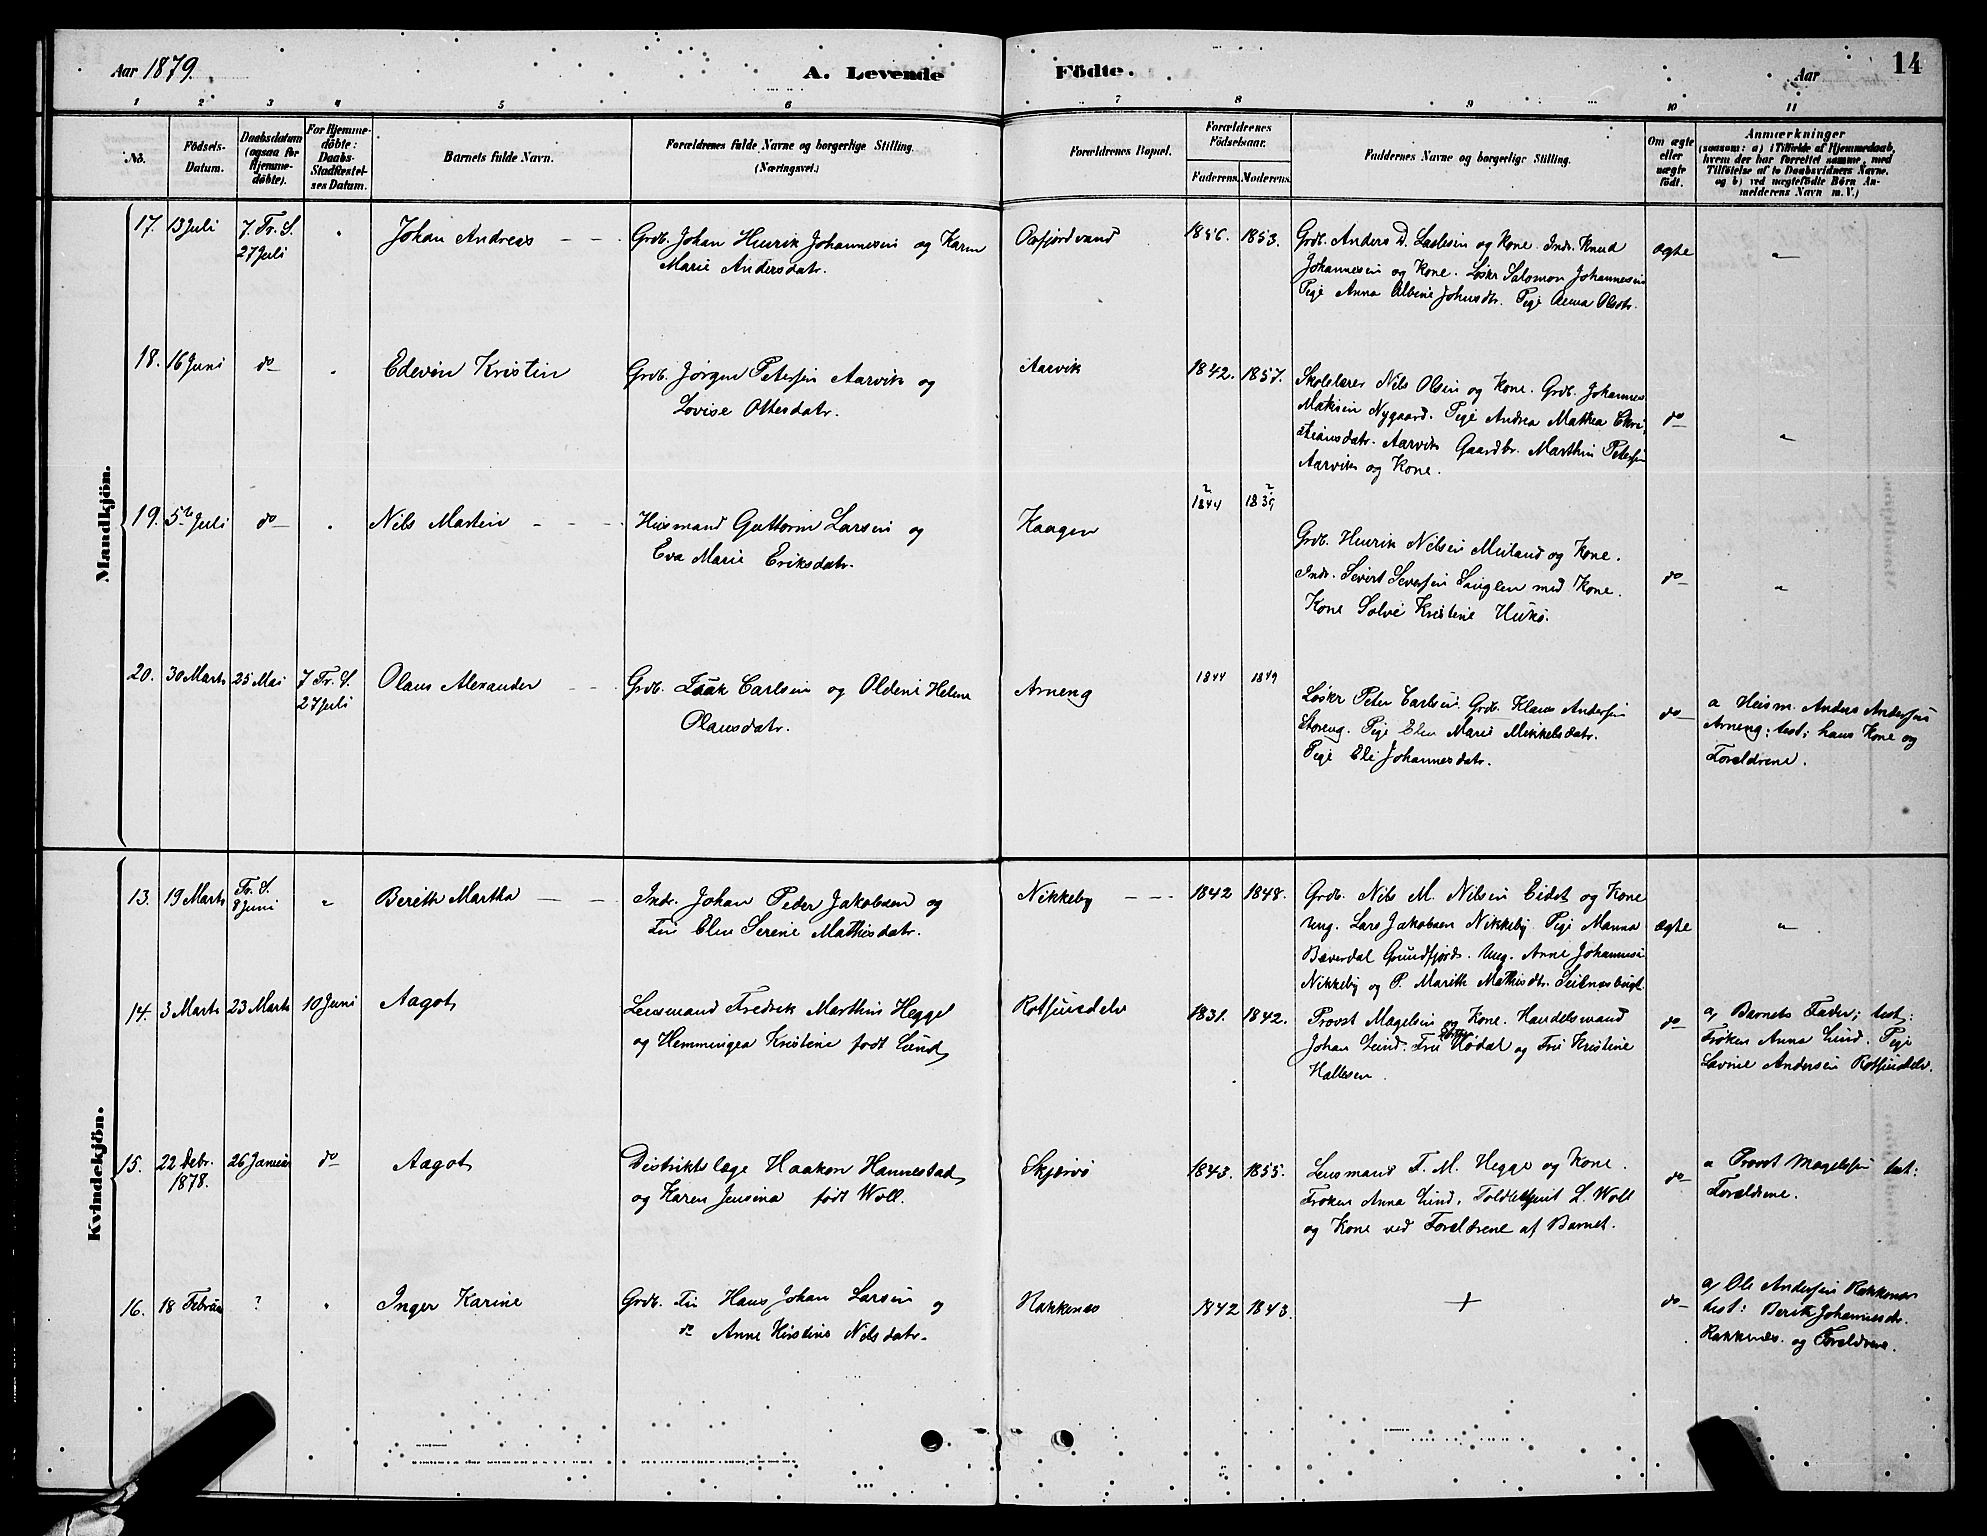 Aar 1879.
A. Levende Födte.
Aar
14
1 2 3 4 5 6 7 8 9 10 11
No.
Födsels-
Datum.
Daabsdatum
(ogsaa for
Hjemme-
döbte).
For Hjemme-
döbte:
Daabs-
Stadfæstel-
ses Datum.
Barnets fulde Navn.
Forældrenes fulde Navne og borgerlige Stilling.
(Næringsvei.)
Forældrenes Bopæl.
Forældrenes
Födselsaar.
Faderens. Moderens.
Faddernes Navne og borgerlige Stilling.
Om ægte
eller
uægte
födt.
Anmærkninger
(saasom: a) i Tilfælde af Hjemmedaab,
hvem der har forrettet samme, med
Tilföielse af to Daabsvidners Navne.
og b) ved uægtefödte Börn An-
melderens Navn m. V.)
Mandkjön.
17. 13 Juli
7. Tr. S.
27 Juli
"
Johan Andreas
Grdb. Johan Henrik Johannesen og Karen
Marie Andersdatr.
Oxfjordvand
1856. 1853.
Grdb. Anders D. Laslesen og Kone. Indr. Knud
Johannesen og Kone. Løskr Salomon Johannesen
Pige Anna Albine Johnsdtr. Pige Anna Olsdtr.
ægte
"
18. 16 Juni do "
Edevin Kristin
Grdb. Jörgen Petersen Aarvik og
Lovise Ottesdatr.
Aarvik
1842. 1857.
Skolelærer Nils Olsen og Kone. Grdb. Johannes
Mathsen Nygaard. Pige Andrea Mathea Chri-
stiansdatr. Aarvik Gaardbr. Marthin Petersen
Aarvik og Kone.
do
"
19. 5te Juli do "
Nils Martin
Husmand Guttorm Larsen og
Eva Marie Eriksdatr.
Kaagen
? ?
1844 1839
Grdb. Henrik Nilsen Meiland og Kone.
Indr. Sivert Seversen Lauglen med Kone.
Kone Solve Kristine Hukö.
do
"
20. 30 Marts 25 Mai
7 Tr. S.
27 Juli
Olaus Alexander
Grdb. Isak Carlsen og Oldeni Helene
Olausdatr.
Arneng
1844 1849
Løskr Peter Carlsen. Grdb. Klaus Andersen
Storeng. Pige Elen Marie Mikkelsdatr.
Pige Eli Johannesdatr.
do
a Husm. Anders Andersen
Arneng; test; hans Kone og
Forældrene.
Kvindekjön.
13. 19 Marts
Tr. S.
8 Juni
"
Bereth Martha
Indr. Johan Peder Jakobsen og
Fin Elen Serine Mathisdatr.
Nikkeby
1842 1848.
Grdb. Nils M. Nilsen Eidet og Kone
Ung. Lars Jakobsen Nikkeby. Pige Manna
Bæverdal Grundfjord. Ung. Arne Johannesen
Nikkeby og P. Marith Mathisdtr. Leitnesbugt.
ægte
"
14. 3 Marts 23 Marts 10 Juni
Aagot
Lensmand Fredrik Marthin Hegge
og Hemmingea Kristine födt Lund
Rotsundelv
1831. 1842.
Provst Magelsen og Kone. Handelsmand
Johan Lund. Frü Hødal og Frü Kristine
Hallesen.
do
a, Barnets Fader; test:
Frøken Anna Lund. Pige
Lavine Andersen Rotsundelv.
15. 22 Debr.
1878.
26 Januar do
Aagot
Distriktslæge Haakon Hannestad
og Karen Jensina født Woll.
Skjærvö
1843. 1855.
Lensmand F. M. Hegge og Kone.
Frøken Anna Lund. L. Woll
og Kone ved Forældrene af Barnet.
do
a Provst Magelsen test:
Forældrene.
16. 18 Februar ? "
Inger Karine
Grdb. Fin Hans Johan Larsen og
do Anne Kirstine Nilsdatr.
Rakkenes
1842 1843.
+
do
a, Ole Andersen Rakkenes
test: Berith Johannesdtr.
Rakkenes. og Forældrene.